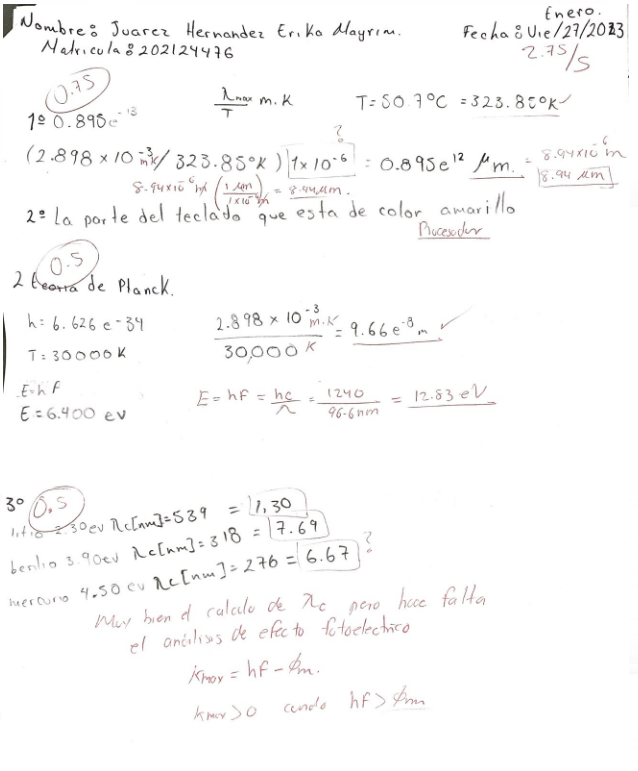 Enero.
Nombre: Juarez Hernandez Erika Mayrim. Fecha: Vie/27/2023
Matricula: 202124476
2.75/5
0.75
λmax/T m.K T=50.7°C = 323.85°K
1º 0.895e⁻¹³
?
(2.898 × 10⁻³ m/k / 323.85°K) 1×10⁻⁶ = 0.895e¹² μm. = 8.94×10⁻⁶ m
8.94×10⁻⁶ m (1 μm / 1×10⁻⁶ m) = 8.94 μm. 8.94 μm
2º La parte del teclado que esta de color amarillo
Procesador
0.5
2 teoria de Planck.
h: 6.626 e-34 2.898 × 10⁻³ m.K / 30,000 K = 9.66e⁻⁸ m
T: 30000K
E=hF
E = hF = hc/λ = 1240/96.6nm = 12.83 eV
E=6.400 ev
3º 0.5
litio 2.30ev λc[nm]=539 = 1,30
berilio 3.90ev λc[nm]=318 = 7.69
mercurio 4.50 ev λc[nm]=276 = 6.67 ?
Muy bien el calculo de λc pero hace falta
el análisis de efecto fotoelectrico
Kmax = hf - ϕm.
Kmax > 0 cuando hf > ϕm